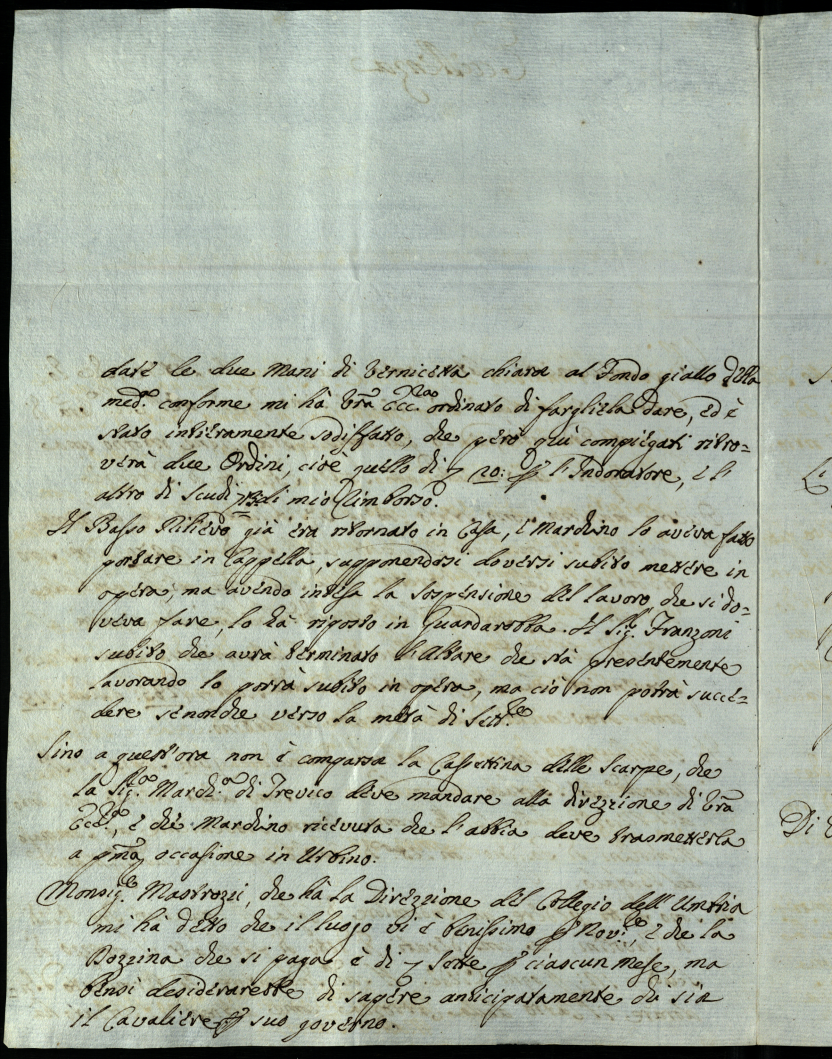 date le due mani di vernicetta chiara al Fondo giallo della
med.ª conforme mi hà Vrã Ecc.za ordinato di fargliela dare, ed è
stato intieramente sodisfatto, che però quì compiegati ritro=
verà due Ordini, cioè quello di 20: p l'Indoratore, e l'
altro di Scudi di mio Rimborso.
Il Basso Rilievo già era ritornato in Casa, e Marchino lo aveva fatto
portare in Cappella, supponendosi doversi subito mettere in
opera; ma avendo intesa la sospensione del lavoro, che si do=
veva fare, lo hà riposto in Guardarobba. Il Sig.r Franzoni
subito che avrà terminato l'Altare che stà presentemente
lavorando lo porrà subito in opera, ma ciò non potrà succe=
dere se non che verso la metà di Sett.bre
Sino a quest'ora non è comparsa la Cassettina delle Scarpe, che
la Sig.ra March.ª di Trevico deve mandare alla direzzione di Vrã
Ecc.ª, e che Marchino ricevuta che l'abbia deve trasmetterla
a pmã occasione in Urbino.
Monsig.re Mastrozzi, che hà la Direzzione del Collegio dell'Umbria
mi hà detto che il luogo vi è benissimo p Nov.bre, e che la
Dozzina che si paga è di sette p ciascun Mese, ma
bensì desiderarebbe di sapere anticipatamente chi sia
il Cavaliere p suo governo.
Di